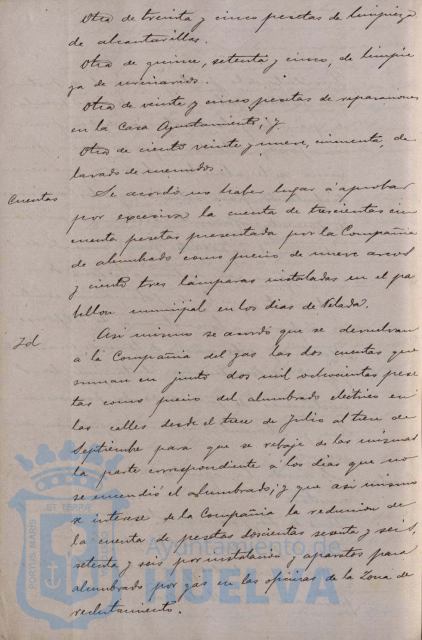 Otra de treinta y cinco pesetas de limpieza
de alcantarillas.
Otra de quince, setenta y cinco, de limpie
za de urinarios.
Otra de veinte y cinco pesetas de reparaciones
en la Casa Ayuntamiento; y
Otra de ciento veinte y nueve, cincuenta, de
lavado de menudos.
Cuentas
Se acordó no haber lugar á aprobar
por excesiva la cuenta de trescientas cin
cuenta pesetas presentada por la Compañia
de alumbrado como precio de nueve arcos
y ciento tres lámparas instaladas en el pa
bellon municipal en los dias de Velada.
Id
Asi mismo se acordó que se devuelvan
á la Compañia del gas las dos cuentas que
suman en junto dos mil ochocientas pese
tas como precio del alumbrado eléctrico en
las calles desde el trece de Julio al trece de
Septiembre para que se rebaje de las mismas
la parte correspondiente á los dias que no
se encendió el alumbrado; y que asi mismo
se interese de la Compañia la reduccion de
la cuenta de pesetas doscientas sesenta y seis,
setenta y seis por instalacion y aparatos para
alumbrado por gas en las oficinas de la Zona de
reclutamiento.
PORTUS MARIS ET TERRAE
Ayuntamiento
HUELVA